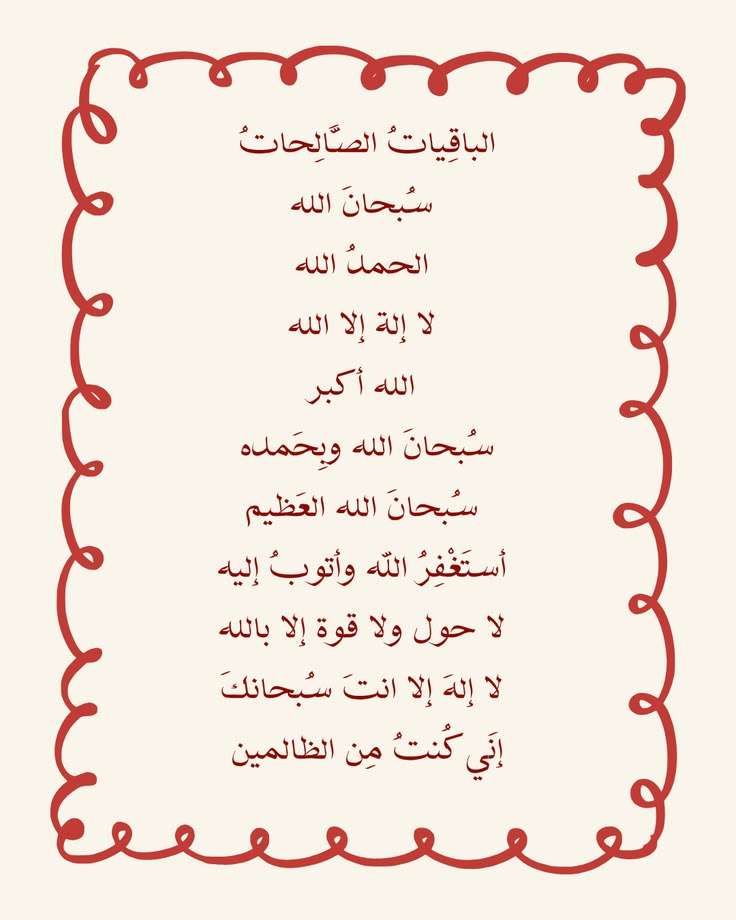 الباقِياتُ الصَّالِحاتُ
سُبحانَ الله
الحمدُ الله
لا إلة إلا الله
الله أكبر
سُبحانَ الله وبِحَمده
سُبحانَ الله العَظيم
أستَغْفِرُ اللّه وأتوبُ إليه
لا حول ولا قوة إلا بالله
لا إلهَ إلا انتَ سُبحانكَ
إنَي كُنتُ مِن الظالمين